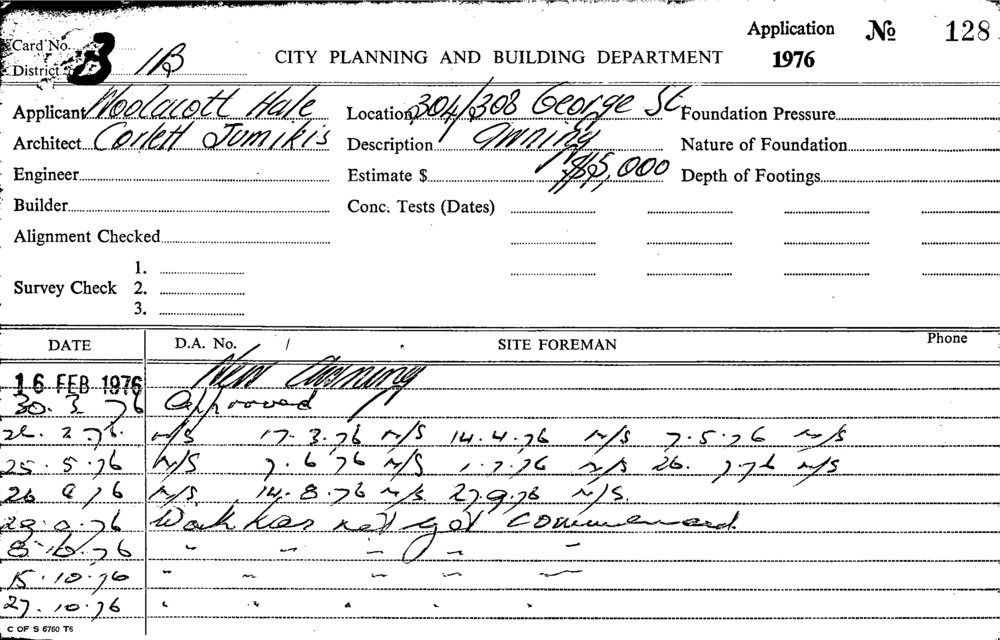 Card No.
District B 1B CITY PLANNING AND BUILDING DEPARTMENT Application 1976 No 128
Applicant Woolacott Hale Location 304/308 George St. Foundation Pressure
Architect Corlett Jumikis Description Awning Nature of Foundation
Engineer Estimate $ 000 Depth of Footings
Builder Conc. Tests (Dates)
Alignment Checked
1.
Survey Check 2.
3.
DATE D.A. No. SITE FOREMAN Phone
16 FEB 1976 New Awning
30.3.76 Approved
2.76. N/S 17.3.76 N/S 14.4.76 N/S 7.5.76 N/S
25.5.76 N/S 7.6.76 N/S 1.7.76 N/S 26.7.76 N/S
26 8 76 N/S 14.8.76 N/S 27.9.76 N/S.
28.9.76 Work has not yet commenced
8.10.76 " " " " "
15.10.76 " " " " "
27.10.76 " " " " "
C OF S 6760 T5